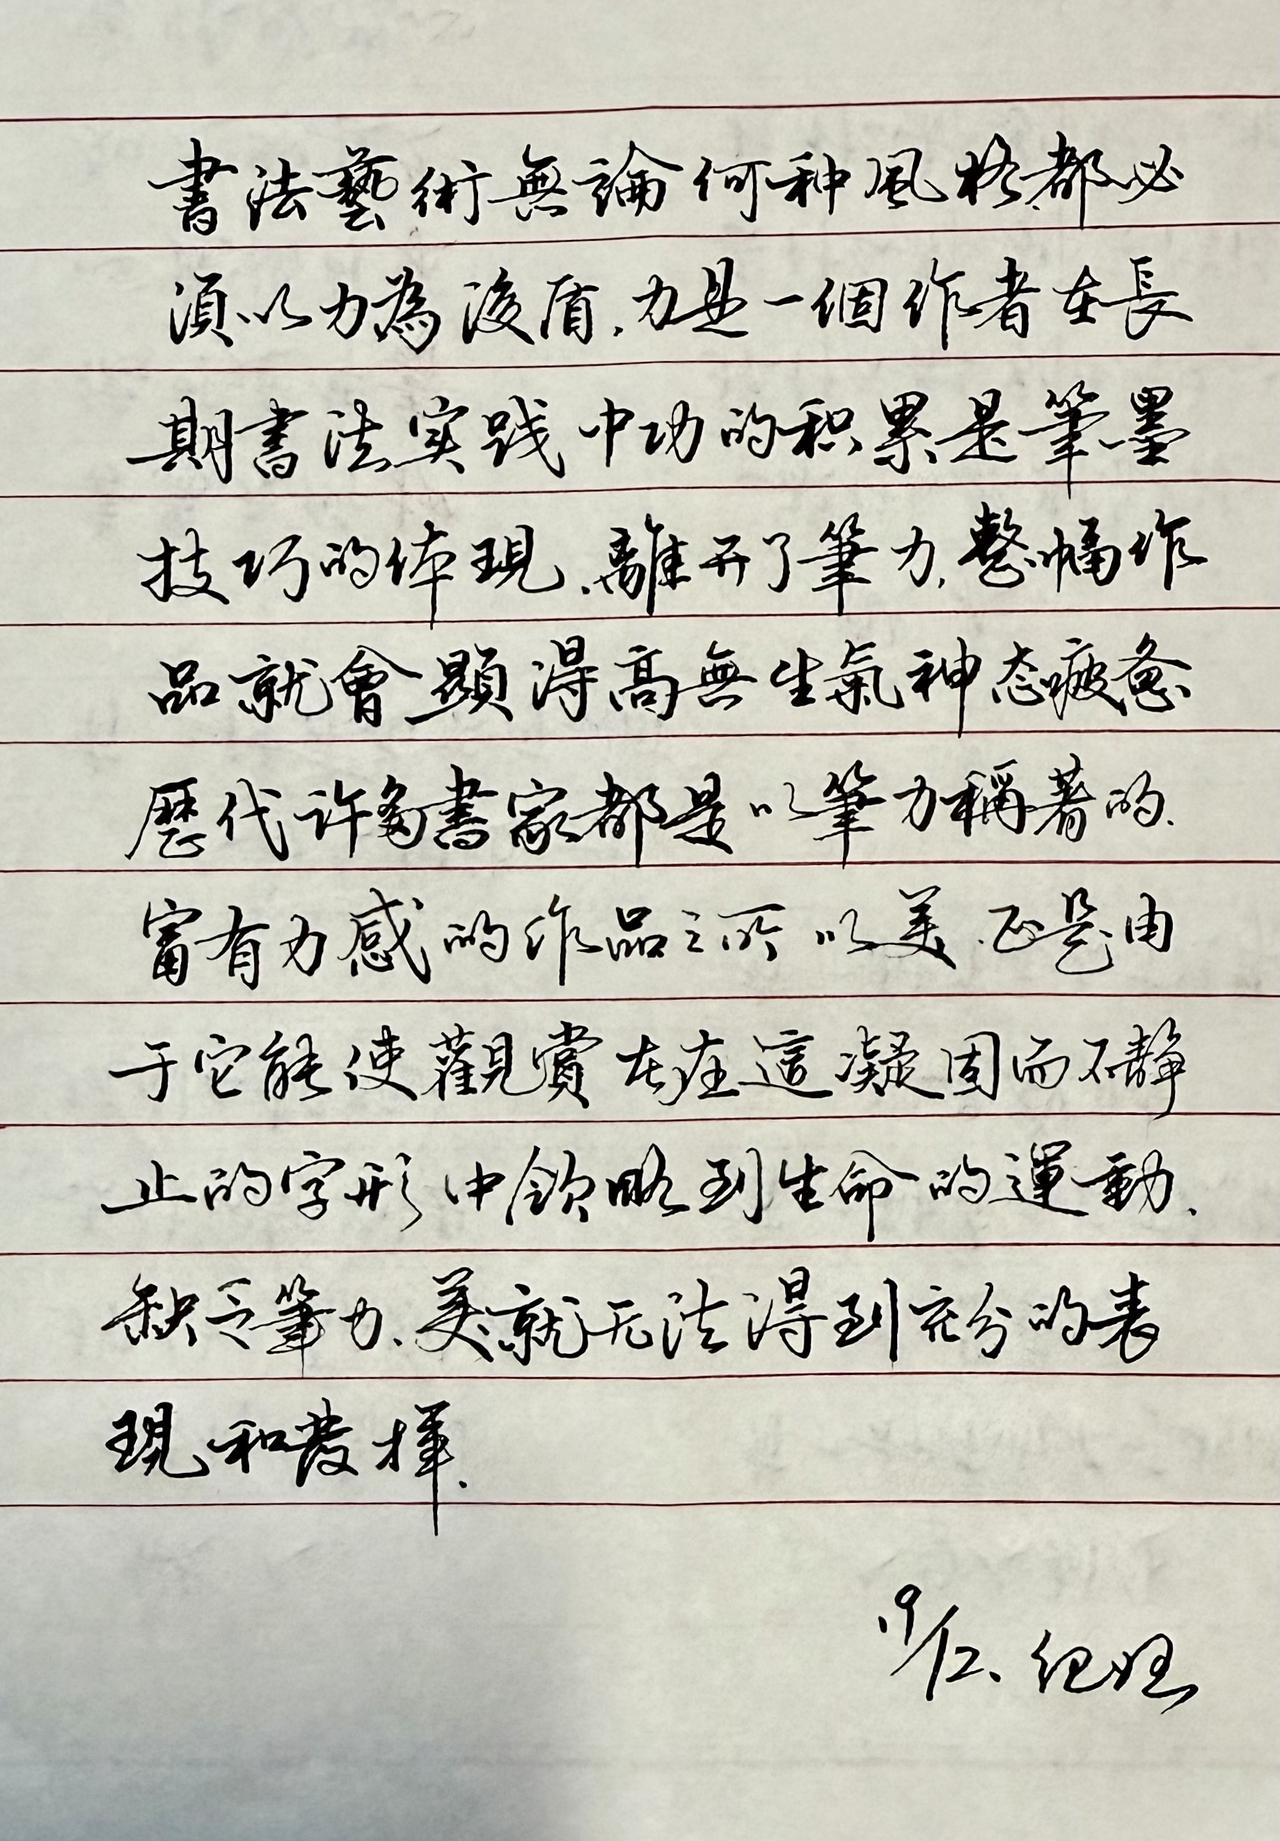 書法藝術無論何种風格都必
須以力為後盾.力是一個作者在長
期書法实践中功的积累是筆墨
技巧的体現.離开了筆力,整幅作
品就會顯得高無生氣神态疲惫
歷代许多書家都是以筆力稱著的.
富有力感的作品之所以美.正是由
于它能使觀賞在這凝固而不靜
止的字形中领略到生命的運動.
缺乏筆力、美就无法得到充分的表
現和發揮.
9/12、纪